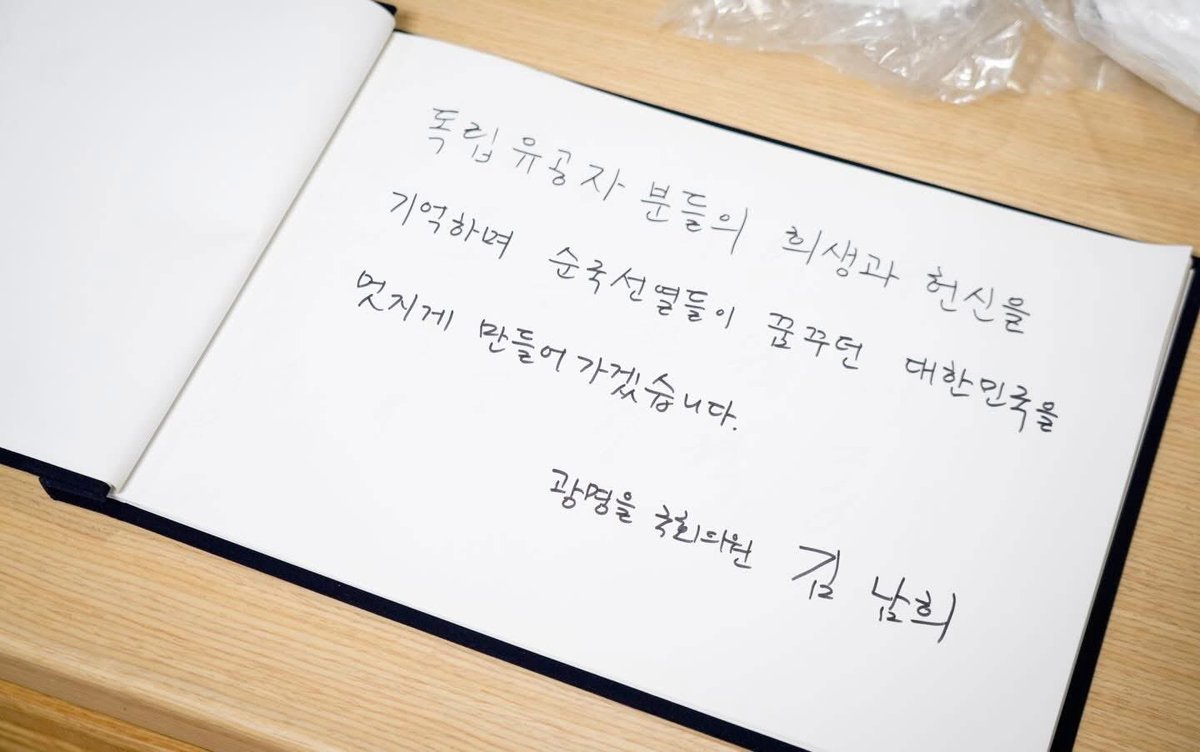 독립유공자 분들의 희생과 헌신을
기억하며 순국선열들이 꿈꾸던 대한민국을
멋지게 만들어가겠습니다.
광명을 국회의원 김남희